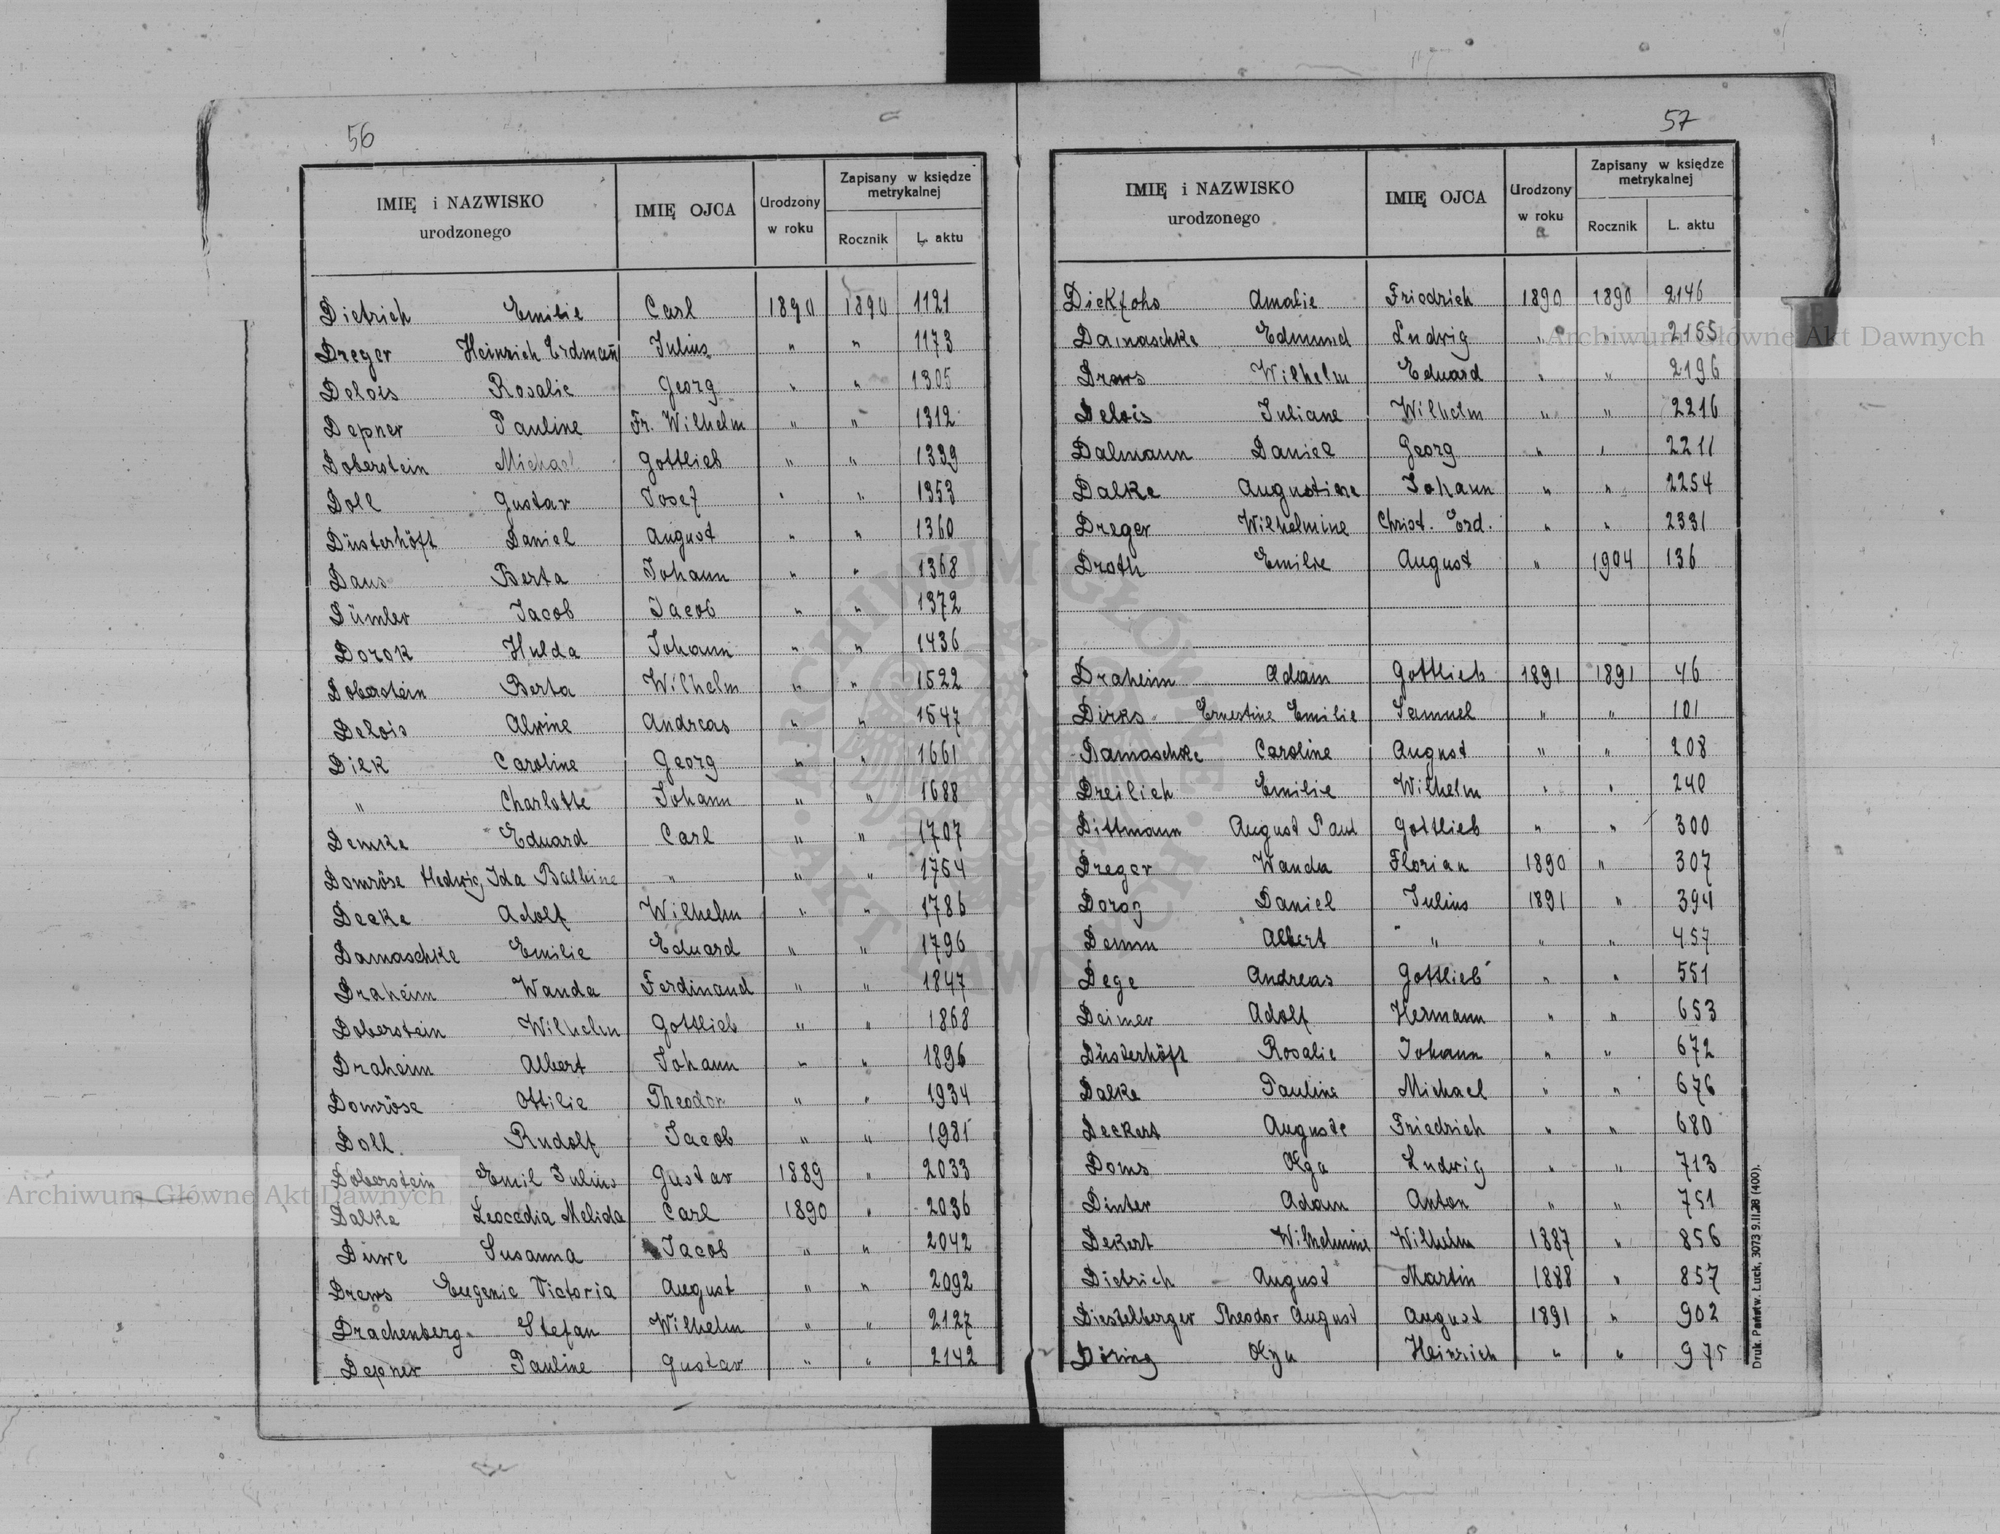 56
IMIĘ i NAZWISKO urodzonego IMIĘ OJCA Urodzony w roku Zapisany w księdze metrykalnej Rocznik L. aktu
Dietrich Emilie Carl 1890 1890 1121
Dreger Heinrich Erdmañ Julius " " 1173
Delois Rosalie Georg " " 1305
Depner Pauline Fr. Wilhelm " " 1312
Doberstein Michael Gottlieb " " 1339
Doll Gustav Josef " " 1353
Düsterhöft Daniel August " " 1360
Daus Berta Johann " " 1368
Dümler Jacob Jacob " " 1372
Dorok Hulda Johann " " 1436
Doberstein Berta Wilhelm " " 1522
Delois Alwine Andreas " " 1547
Dilk Caroline Georg " " 1661
" Charlotte Johann " " 1688
Demke Eduard Carl " " 1707
Domröse Hedwig Ida Balbine " " " 1754
Decke Adolf Wilhelm " " 1786
Damaschke Emilie Eduard " " 1796
Draheim Wanda Ferdinand " " 1847
Doberstein Wilhelm Gottlieb " " 1868
Draheim Albert Johann " " 1896
Domröse Ottilie Theodor " " 1934
Doll Rudolf Jacob " " 1981
Doberstein Emil Julius Gustav 1889 " 2033
Dalke Leocadia Melida Carl 1890 " 2036
Düwe Susanna Jacob " " 2042
Drews Eugenie Victoria August " " 2092
Drachenberg Stefan Wilhelm " " 2127
Depner Pauline Gustav " " 2142
57
IMIĘ i NAZWISKO urodzonego IMIĘ OJCA Urodzony w roku Zapisany w księdze metrykalnej Rocznik L. aktu
Amalie Friedrich 1890 1890 2146
Damaschke Edmund Ludwig " " 2155
Drews Wilhelm Eduard " " 2196
Delois Juliane Wilhelm " " 2216
Dalmann Daniel Georg " " 2211
Dalke Augustine Johann " " 2254
Dreger Wilhelmine Christ. Erd. " " 2331
Droth Emilie August " 1904 136
Draheim Adam Gottlieb 1891 1891 46
Dirks Ernestine Emilie Samuel " " 101
Damaschke Caroline August " " 208
Dreilich Emilie Wilhelm " " 240
Dittmann August Paul Gottlieb " " 300
Dreger Wanda Florian 1890 " 307
Dorog Daniel Julius 1891 " 394
Demm Albert " " " 457
Dege Andreas Gottlieb " " 551
Deimer Adolf Hermann " " 653
Düsterhöft Rosalie Johann " " 672
Dalke Pauline Michael " " 676
Deckert Auguste Friedrich " " 680
Doms Olga Ludwig " " 713
Dinter Adam Anton " " 751
Dekert Wilhelmine Wilhelm 1887 " 856
Dietrich August Martin 1888 " 857
Diestelberger Theodor August August 1891 " 902
Döring Olga Heinrich " " 975
Druk. Państw. Łuck, 3073 9.II.28 (400).
Archiwum Główne Akt Dawnych
Archiwum Główne Akt Dawnych
ARCHIWUM GŁÓWNE AKT DAWNYCH